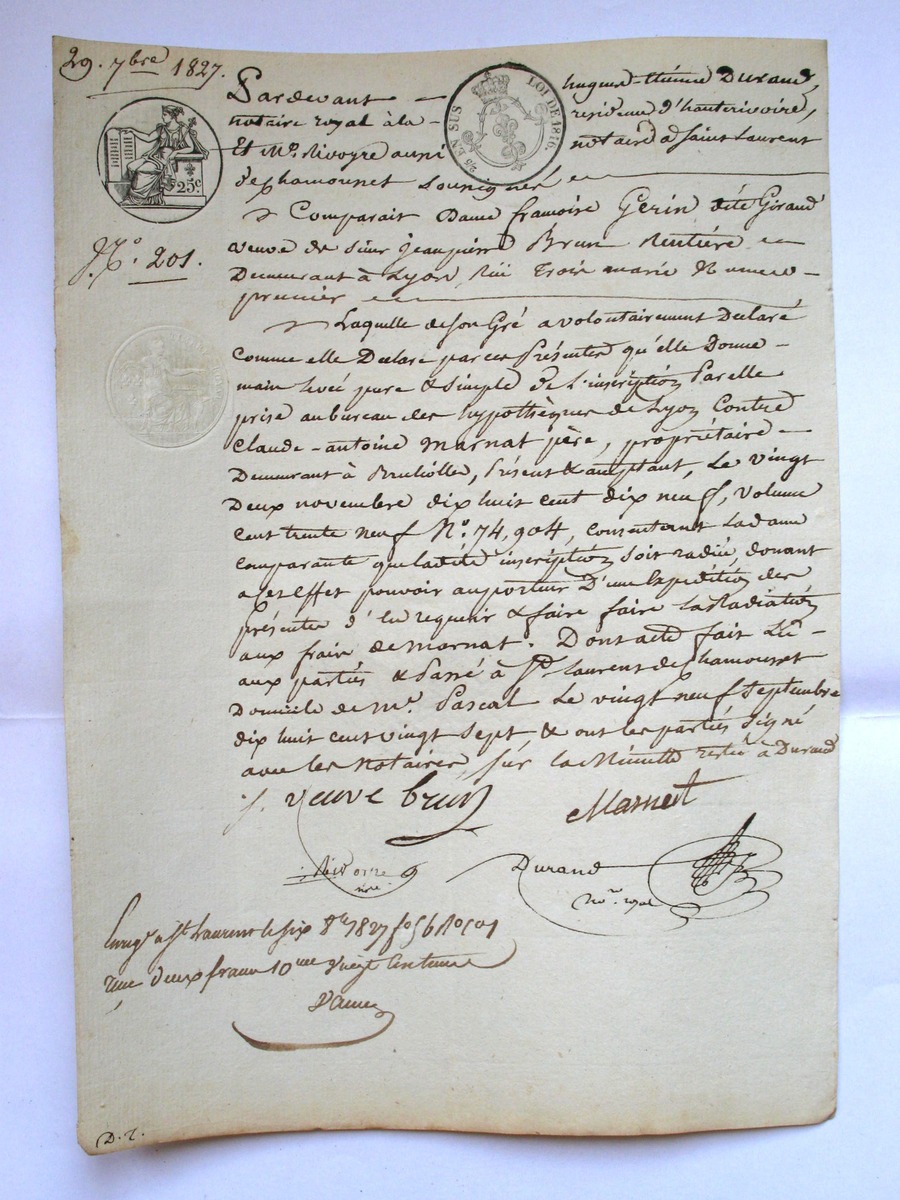 29. 7bre 1827.
Pardevant hugues-étienne Durand,
notaire royal à la résidence d'hauterivoire,
Et Me. Rivoyre aussi notaire à Saint Laurent
de chamousset Soussignés
25 EN SUS
LOI DE 1816.
25 c.
No. 201.
Comparait Dame françoise Gerin dite Giraud
veuve de sieur Jeanpierre Brun Rentière
Demeurant à Lyon, Rue Trois marie Numero
premier
Laquelle de son Gré a volontairement Déclaré
comme elle Déclare par ces Présentes qu'elle Donne
main levée pure & simple de l'inscription Par elle
prise au bureau des hypothèques de Lyon Contre
Claude-antoine Marnat père, propriétaire
Demeurant à Brullolle, Présent & acceptant, Le vingt
Deux novembre dix huit cent dix neuf, volume
cent trente neuf No. 74,904, consentant La dame
comparante que ladite inscription soit radiée, donnant
a cet effet pouvoir au porteur D'une Expédition des
présentes d'en requerir & faire faire La Radiation
aux frais de Marnat. Dont acte fait Lu
aux parties & Passé à St. Laurent de Chamousset
Domicile de Mr. Pascal Le vingt neuf Septembre
dix huit cent vingt Sept & ont les parties Signé
avec les Notaires, sur la Minute restée à Durand
f. veuve brun Marnat
Rivoire
nore
Durand
nore. royal
Enregé a St Laurent le six 8bre 1827 fo 56 Ro
reçu deux francs 10me vingt Centimes
D. T.